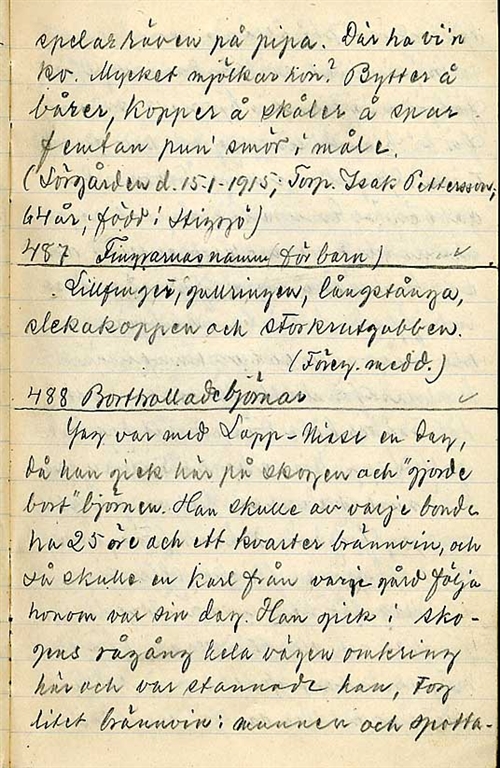 spelar räven på pipa. Där ha vi'n
ko. Mycket mjölkar hon? Byttor å
bårer, kopper å skåler å spar
femtan pun' smör i måle.
(Sörgården d. 15-1-1915; Torp. Isak Pettersson,
64 år, född i Stigsjö)
487 Fingrarnas namn (för barn)
Lillfinger, gullringen, långstånga,
slekakoppen och storkrutgubben.
(Föreg. medd.)
488 Borttrollade björnar
Jag var med Lapp-Nisse en dag,
då han gick här på skogen och "gjorde
bort" björnen. Han skulle av varje bonde
ha 25 öre och ett kvarter brännvin, och
så skulle en karl från varje gård följa
honom var sin dag. Han gick i sko-
gens rågång hela vägen omkring
här och var stannade han, tog
litet brännvin i munnen och spotta-